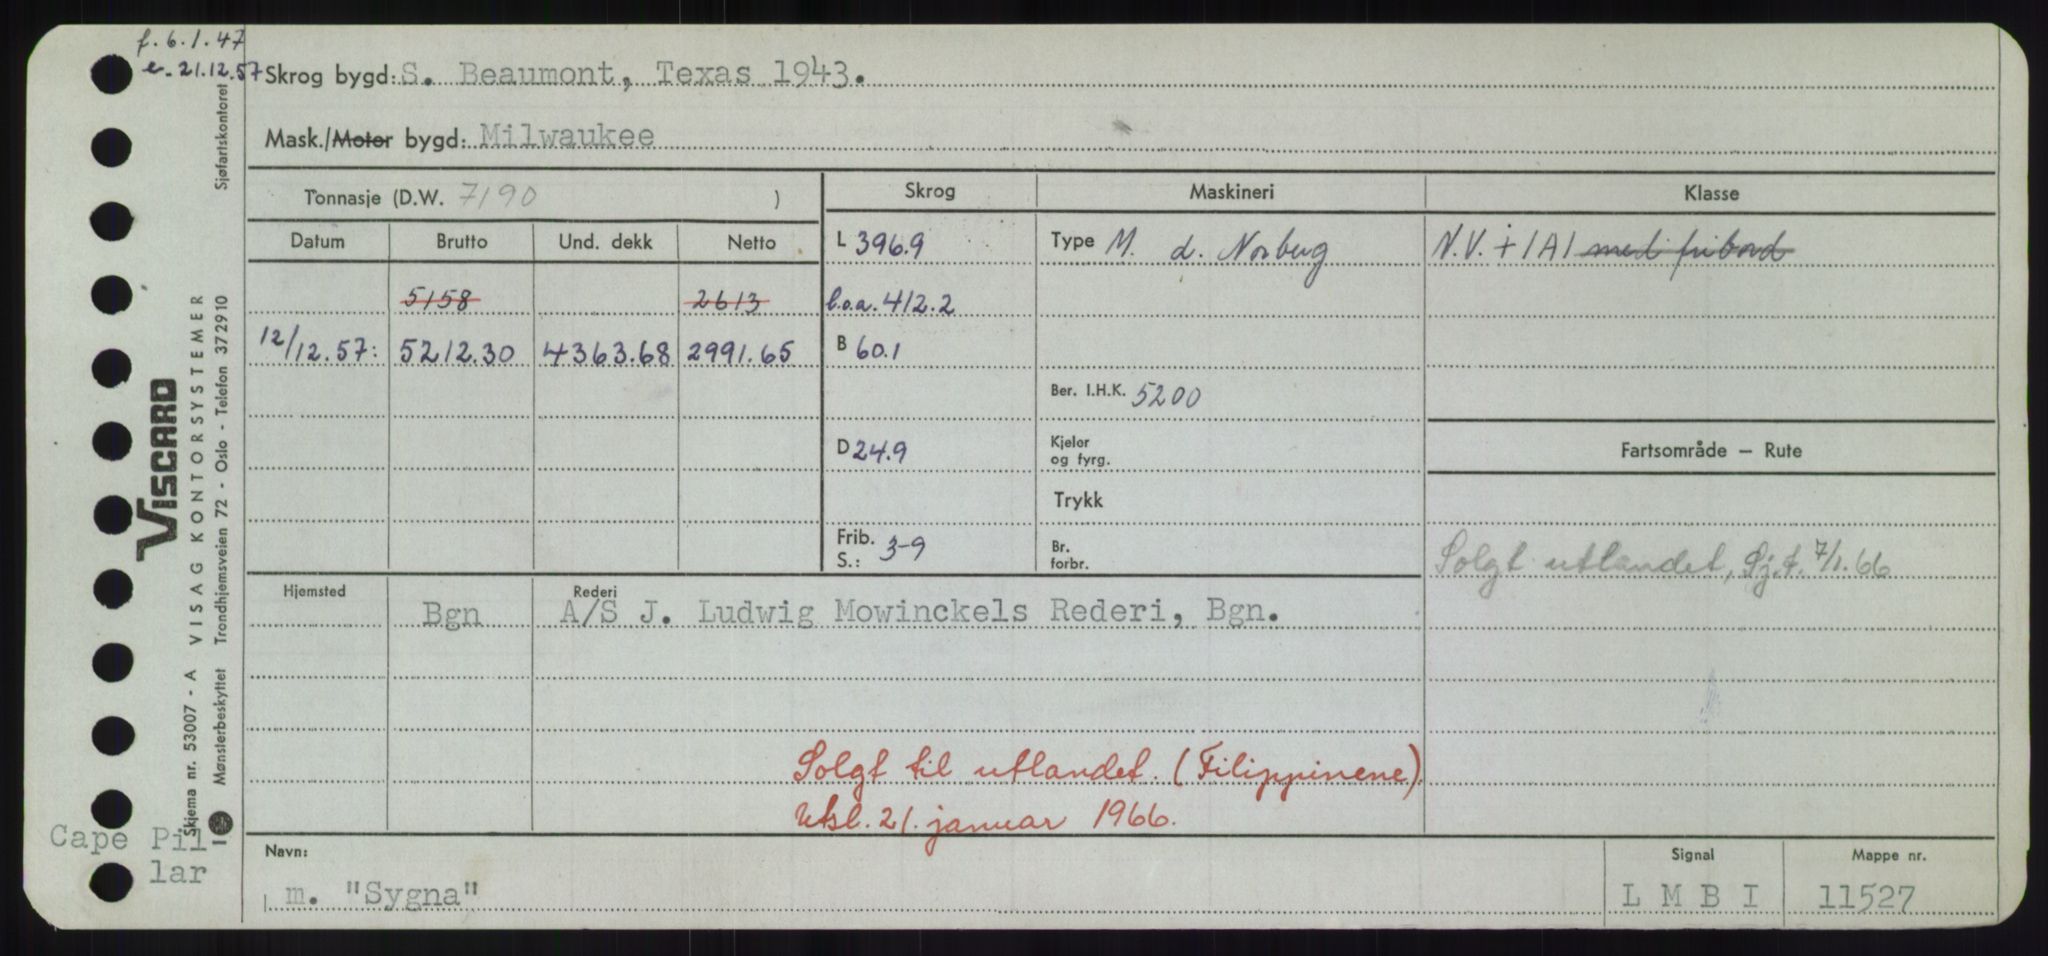 f. 6.1.47
e. 21.12.57
Skrog bygd: S. Beaumont, Texas 1943.
Mask./Motor bygd: Milwaukee
Tonnasje (D.W. 7190 )
Skrog Maskineri Klasse
Datum Brutto Und. dekk Netto
L 396.9 Type M. d. Norberg N.V. + 1A1 med fribord
5158 2613 l.o.a. 412.2
12/12.57: 5212.30 4363.68 2991.65 B 60.1
Ber. I.H.K. 5200
D 24.9 Kjeler og fyrg. Fartsområde – Rute
Trykk
Frib. S.: 3-9 Br. forbr. Solgt utlandet, Sj.t. 7/1.66
Hjemsted Rederi
Bgn A/S J. Ludwig Mowinckels Rederi, Bgn.
Solgt til utlandet. (Filippinene)
Utsl. 21. januar 1966.
Navn: Signal Mappe nr.
m. "Sygna" L M B I 11527
Cape Pil
lar
VISCARD
Skjema nr. 53007 - A VISAG KONTORSYSTEMER
Mønsterbeskyttet Trondhjemsveien 72 - Oslo - Telefon 372910 Sjøfartskontoret